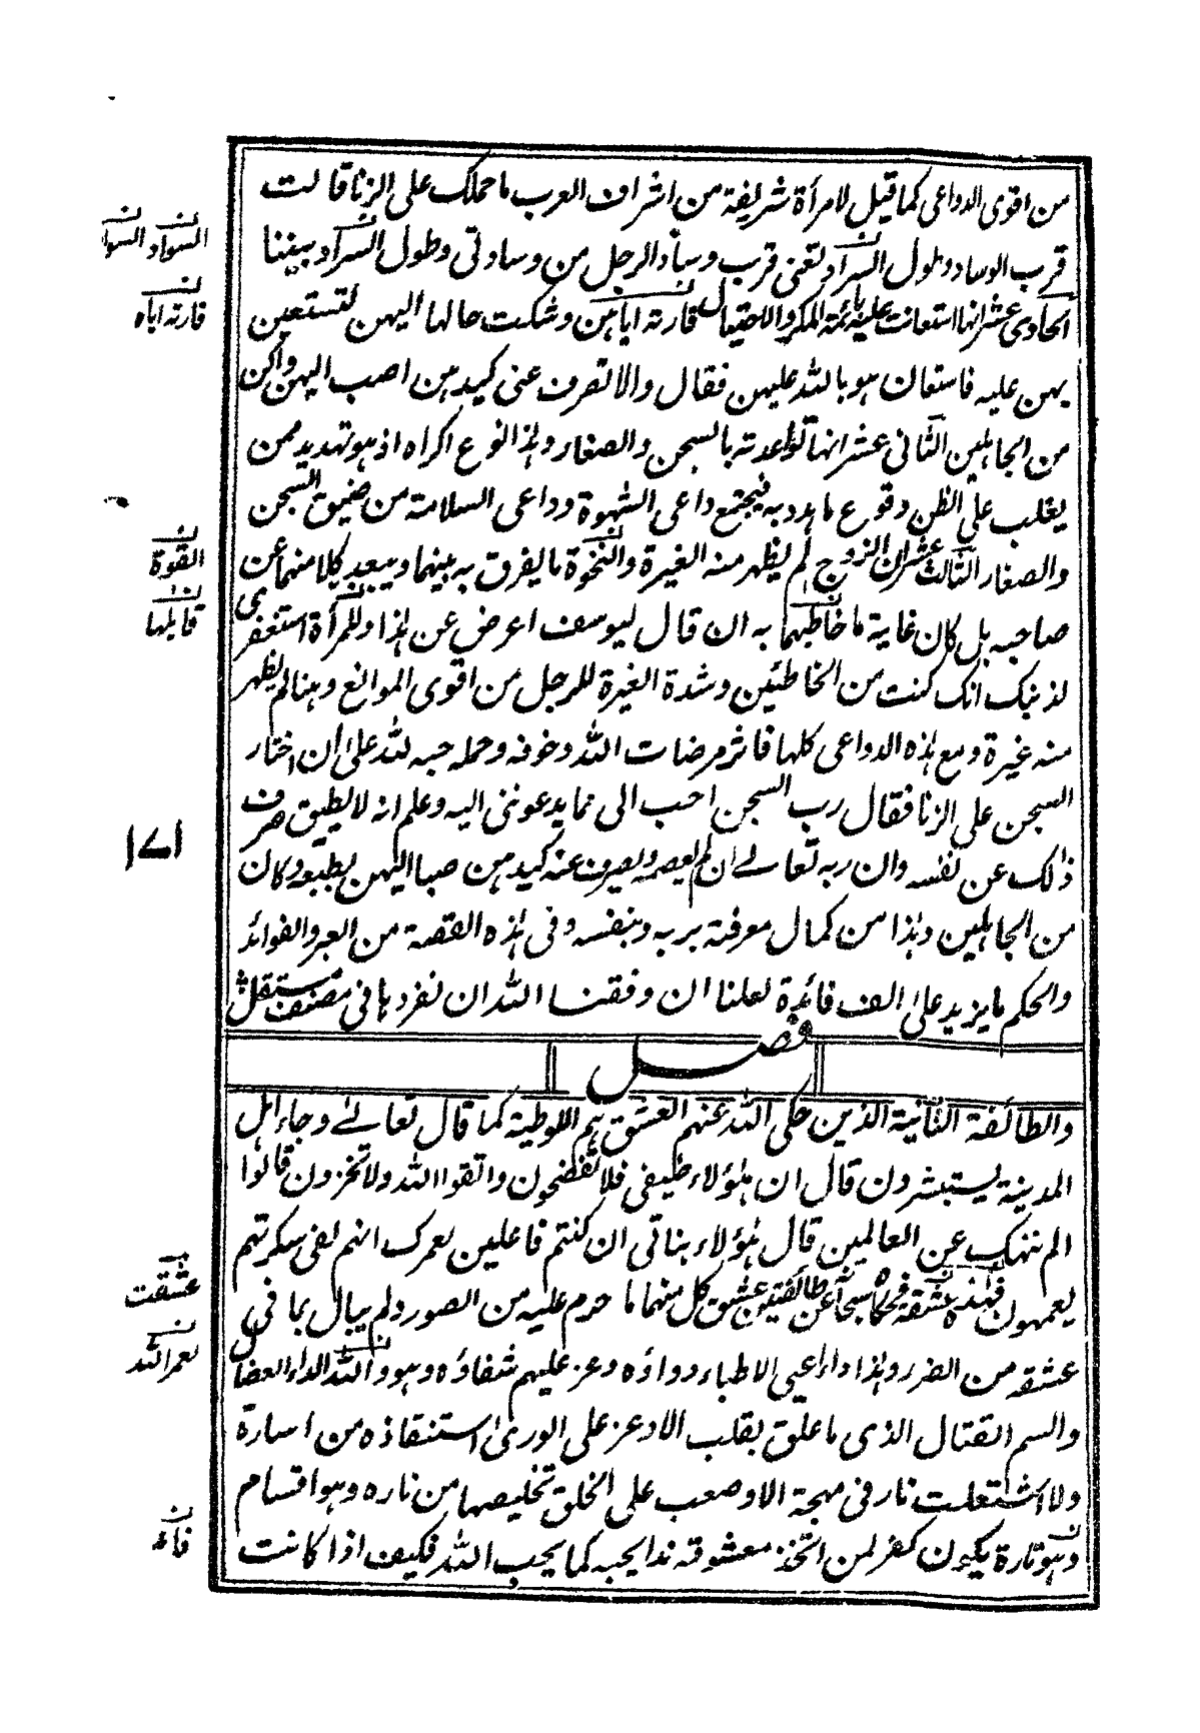 من اقوى الدواعى كما قيل لامرأة شريفة من اشراف العرب ما حملك على الزنا قالت
قرب الوساد وطول السراد تعنى قرب وساد الرجل من وسادتى وطول السراد بيننا
الحادى عشر انها استعانت عليه بائمة المكر والاحتيال فارته اياهن وشكت حالها اليهن لتستعين
بهن عليه فاستعان هو بالله عليهن فقال والا تصرف عنى كيدهن اصب اليهن واكن
من الجاهلين الثانى عشر انها تواعدته بالسجن والصغار وهذا نوع اكراه اذ هو تهديد ممن
يغلب على الظن وقوع ما هدد به فيجتمع داعى الشهوة وداعى السلامة من ضيق السجن
والصغار الثالث عشر ان الزوج لم يظهر منه الغيرة والنخوة ما يفرق به بينهما ويبعد كلا منهما عن
صاحبه بل كان غاية ما خاطبهما به ان قال ليوسف اعرض عن هذا وللمرأة استغفرى
لذنبك انك كنت من الخاطئين وشدة الغيرة للرجل من اقوى الموانع وهنا لم يظهر
منه غيرة ومع هذه الدواعى كلها فاثر مرضات الله وخوفه وحمله حبه لله على ان اختار
السجن على الزنا فقال رب السجن احب الى مما يدعوننى اليه وعلم انه لا يطيق صرف
ذلك عن نفسه وان ربه تعالى ان لم يعصمه ويصرف عنه كيدهن صبا اليهن بطبعه وكان
من الجاهلين وهذا من كمال معرفته بربه وبنفسه وفى هذه القصة من العبر والفوائد
والحكم ما يزيد على الف فائدة لعلنا ان وفقنا الله ان نفردها فى مصنف مستقل
فصل
والطائفة الثانية الذين حكى الله عنهم العشق هم اللوطية كما قال تعالى وجاء اهل
المدينة يستبشرون قال ان هؤلاء ضيفى فلا تفضحون واتقوا الله ولا تخزون قالوا
الم ننهك عن العالمين قال هؤلاء بناتى ان كنتم فاعلين لعمرك انهم لفى سكرتهم
يعمهون فهذه عشقة فحكاه سبحانه عن طائفتين عشق كل منهما ما حرم عليه من الصور ولم يبال بما فى
عشقه من الضرر وهذا داء اعيى الاطباء دواؤه وعز عليهم شفاؤه وهو والله الداء العضال
والسم القتال الذى ما علق بقلب الا وعز على الورى استنقاذه من اسارة
ولا اشتعلت نار فى مهجة الا وصعب على الخلق تخليصها من ناره وهو اقسام
وهو تارة يكون كفر لمن اتخذ معشوقه ندا يحبه كما يحب الله فكيف اذا كانت
السواد السواد
فارته اياه
القوة
قابلها
١٧١
عشقت
لعمر الله
فانه